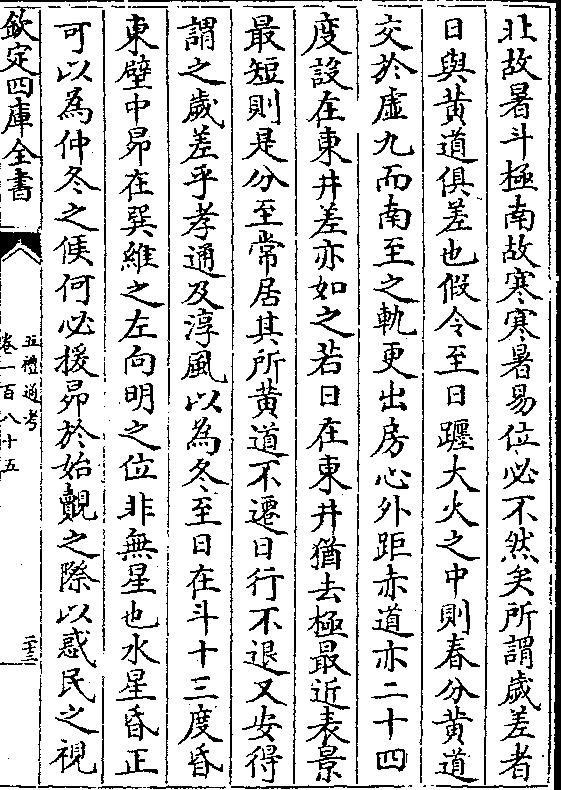 北故暑斗極南故寒寒暑易位必不然矣所謂歲差者
日與黄道俱差也假令至日躔大火之中則春分黄道
交於虛九而南至之軌更出房心外距赤道亦二十四
度設在東井差亦如之若日在東井猶去極最近表景
最短則是分至常居其所黄道不遷日行不退又安得
謂之歲差乎孝通及淳風以為冬至日在斗十三度昏
東壁中昴在巽維之左向明之位非無星也水星昏正
可以為仲冬之候何必援昴於始覿之際以惑民之視
欽定四庫全書
五禮通考
卷一百八十五
二十三